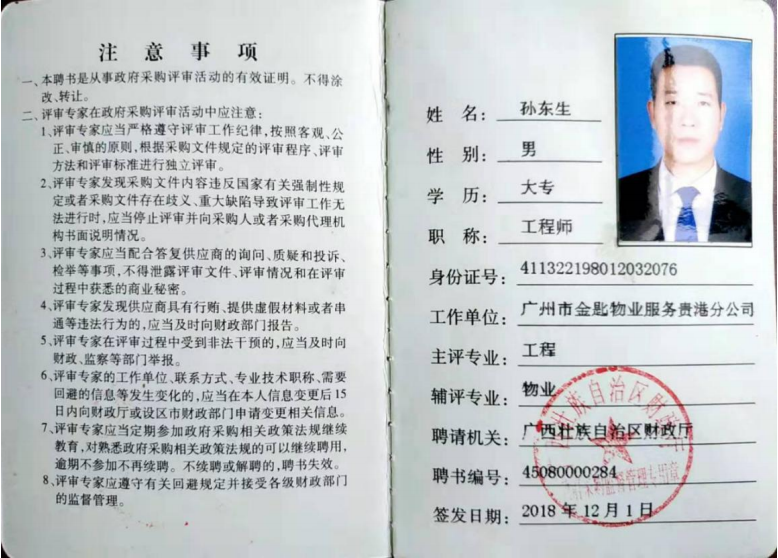 注意事项
一、本聘书是从事政府采购评审活动的有效证明。不得涂
改、转让。
二、评审专家在政府采购评审活动中应注意:
1、评审专家应当严格遵守评审工作纪律,按照客观、公
正、审慎的原则,根据采购文件规定的评审程序、评审
方法和评审标准进行独立评审。
2、评审专家发现采购文件内容违反国家有关强制性规
定或者采购文件存在歧义、重大缺陷导致评审工作无
法进行时,应当停止评审并向采购人或者采购代理机
构书面说明情况。
3、评审专家应当配合答复供应商的询问、质疑和投诉、
检举等事项,不得泄露评审文件、评审情况和在评审
过程中获悉的商业秘密。
4、评审专家发现供应商具有行贿、提供虚假材料或者串
通等违法行为的,应当及时向财政部门报告。
5、评审专家在评审过程中受到非法干预的,应当及时向
财政、监察等部门举报。
6、评审专家的工作单位、联系方式、专业技术职称、需要
回避的信息等发生变化的,应当在本人信息变更后15
日内向财政厅或设区市财政部门申请变更相关信息。
7、评审专家应当定期参加政府采购相关政策法规继续
教育,对熟悉政府采购相关政策法规的可以继续聘用,
逾期不参加不再续聘。不续聘或解聘的,聘书失效。
8、评审专家应遵守有关回避规定并接受各级财政部门
的监督管理。
姓名: 孙东生
性别: 男
学历: 大专
职称: 工程师
身份证号: 411322198012032076
工作单位: 广州市金匙物业服务贵港分公司
主评专业: 工程
辅评专业: 物业
聘请机关: 广西壮族自治区财政厅
聘书编号: 45080000284
签发日期: 2018年12月1日
壮族自治区财政厅